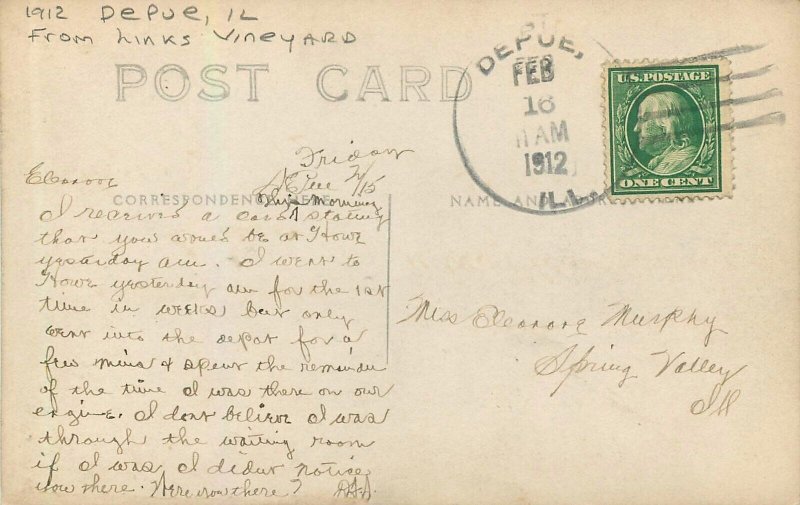 1912 DePue, IL
From Links Vineyard
POST CARD
DEPUE,
FEB
16
11 AM
1912
ILL.
U.S. POSTAGE
ONE CENT
Friday
Eleanore 2/15
CORRESPONDENCE HERE
NAME AND
this morning
I received a card stating
that you would be at Howe
yesterday am. I went to
Howe yesterday am for the 1st
time in weeks but only
went into the depot for a
few mins & spent the remainder
of the time I was there on our
engine. I dont believe I was
through the waiting room
if I was, I didnt notice
you there. Were you there?
Miss Eleanore Murphy
Spring Valley
Ill